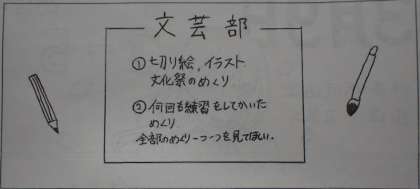 文芸部
①切り絵,イラスト
文化祭のめくり
②何回も練習をしてかいた
めくり
全部のめくり一つ一つを見てほしい.